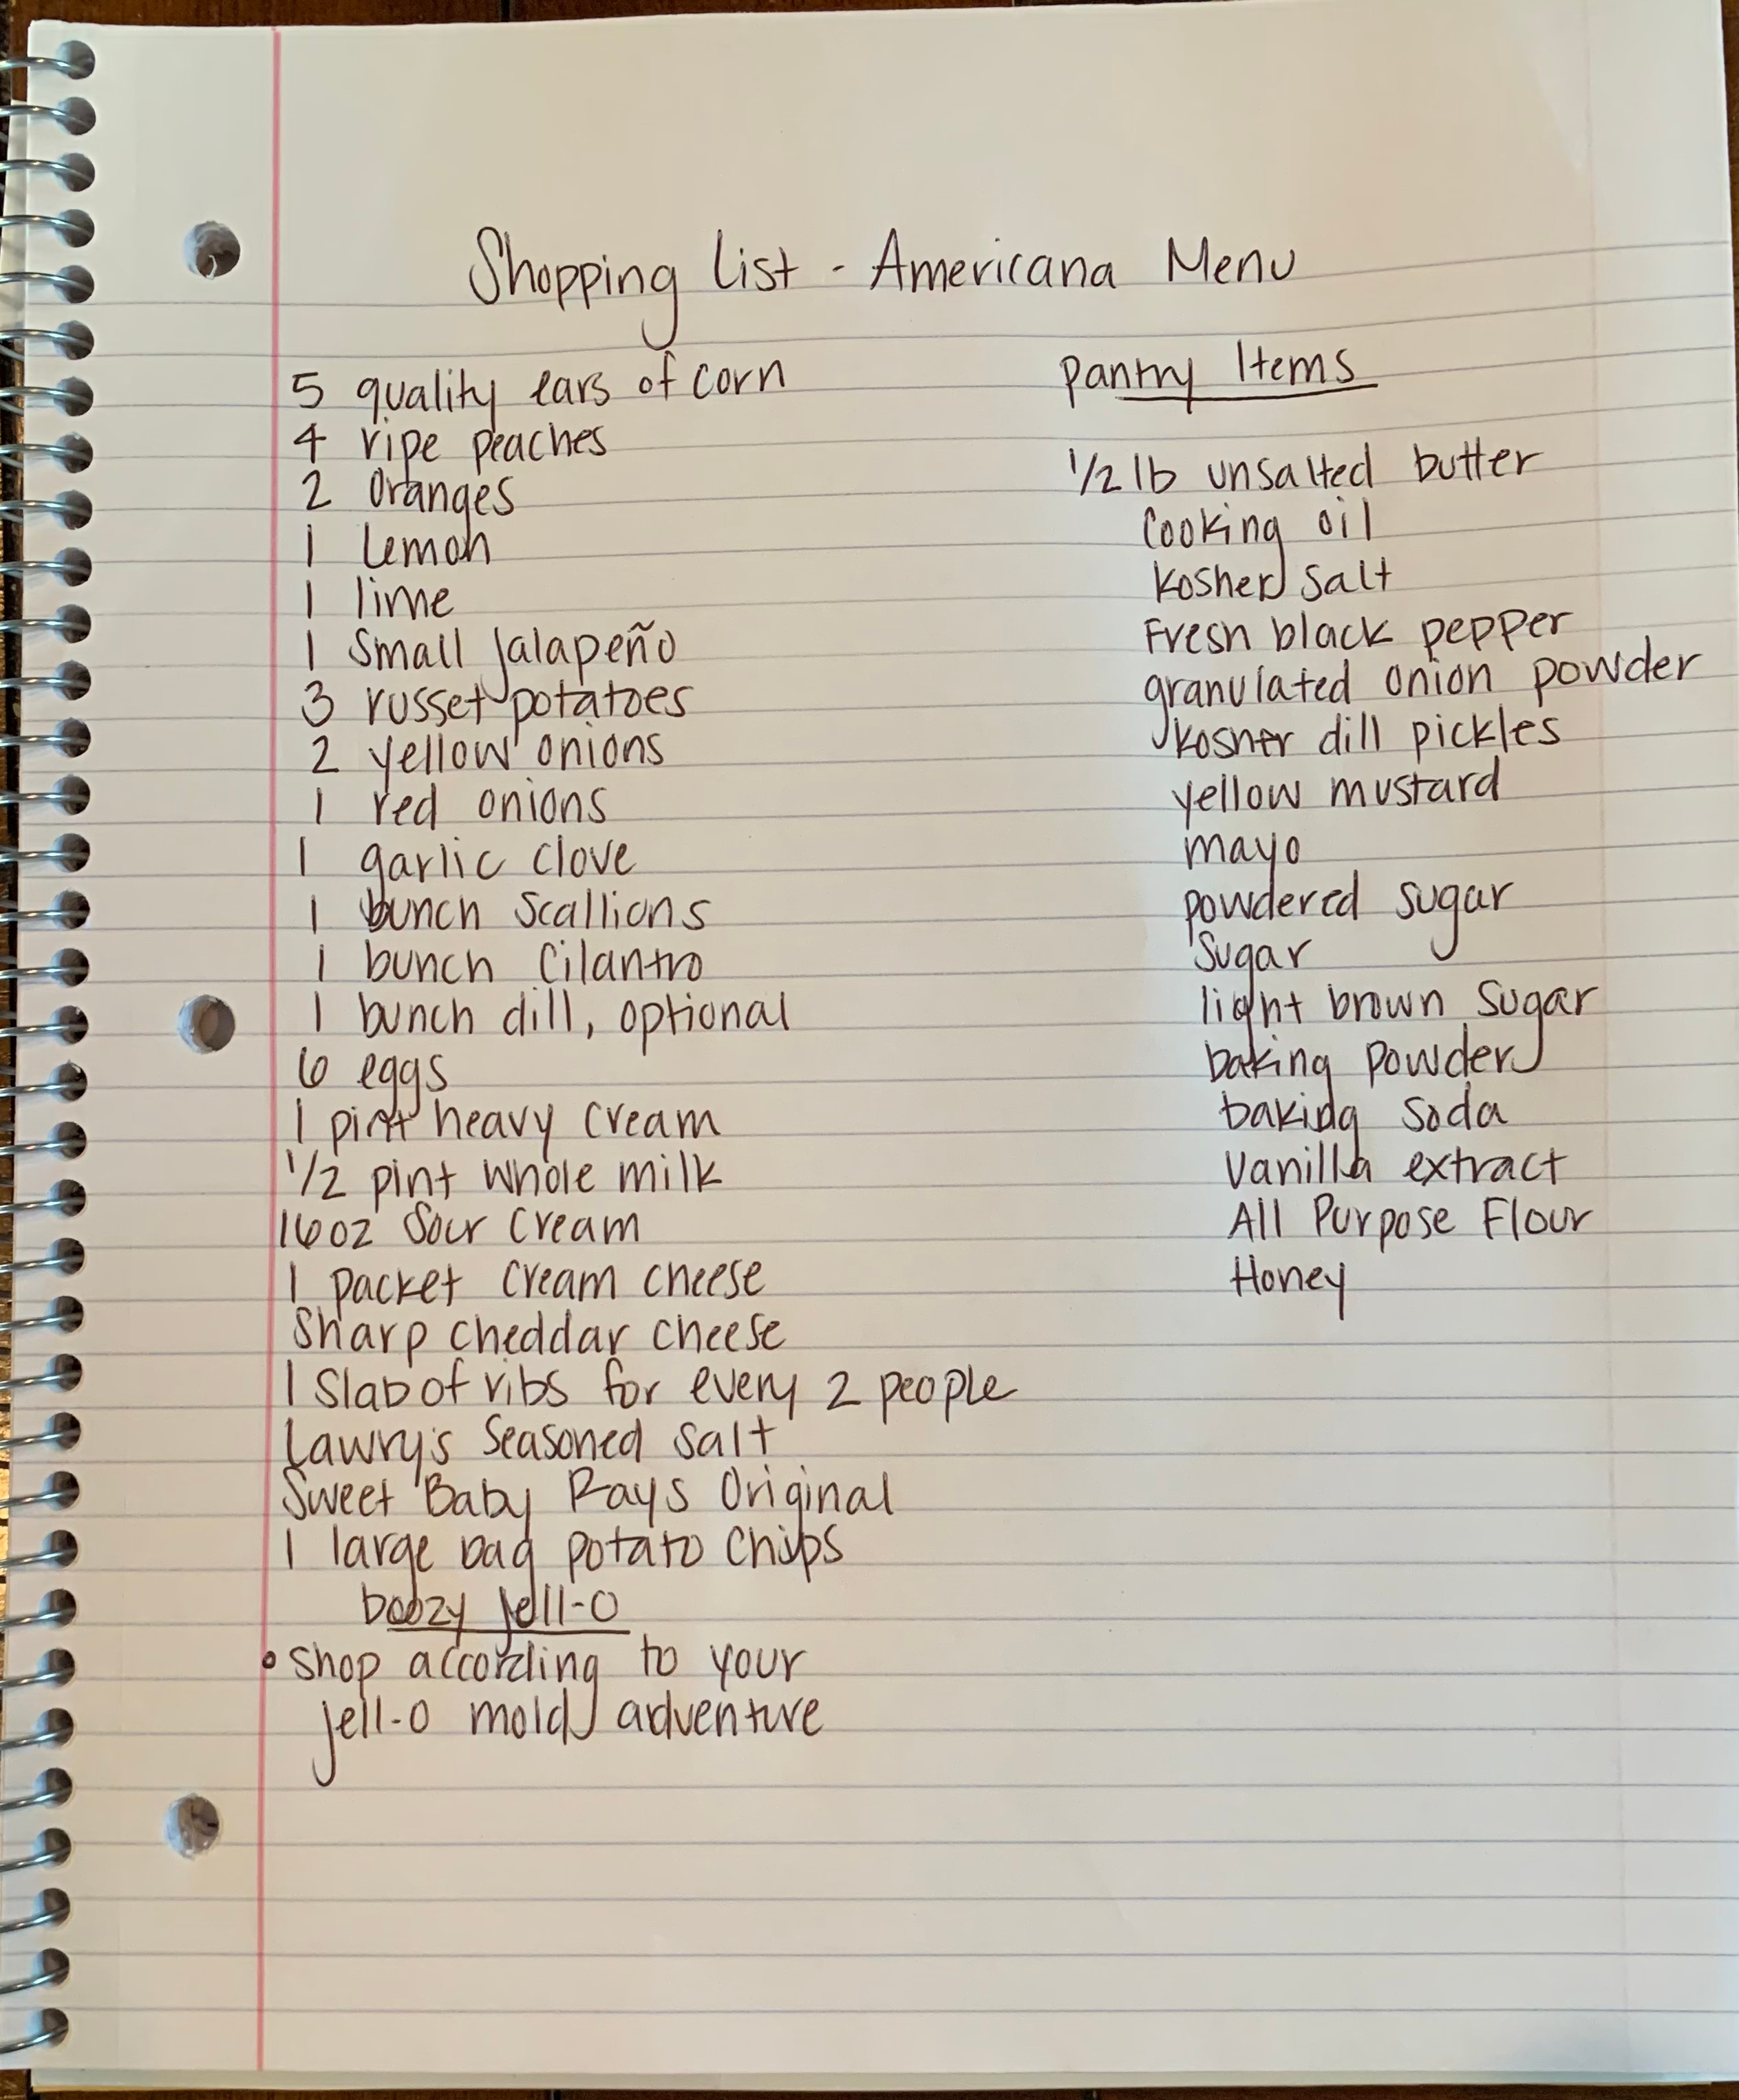 Shopping List - Americana Menu
5 quality ears of corn
4 ripe peaches
2 oranges
1 Lemon
1 lime
1 Small Jalapeño
3 russet potatoes
2 yellow onions
1 red onions
1 garlic clove
1 bunch Scallions
1 bunch Cilantro
1 bunch dill, optional
6 eggs
1 pint heavy cream
1/2 pint whole milk
16oz Sour Cream
1 packet cream cheese
Sharp cheddar cheese
1 Slab of ribs for every 2 people
Lawry's Seasoned Salt
Sweet Baby Rays Original
1 large bag potato chips
boozy jell-o
• Shop according to your
jell-o mold adventure
Pantry Items
1/2 lb unsalted butter
Cooking oil
Kosher Salt
Fresh black pepper
granulated onion powder
Kosher dill pickles
yellow mustard
mayo
powdered sugar
Sugar
light brown Sugar
baking powder
baking soda
Vanilla extract
All Purpose Flour
Honey